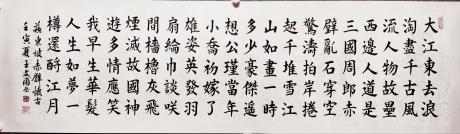 大江東去浪
淘盡千古風
流人物故壘
西邊人道是
三國周郎赤
壁亂石穿空
驚濤拍岸捲
起千堆雪江
山如畫一時
多少豪傑遙
想公瑾當年
小喬初嫁了
雄姿英發羽
扇綸巾談咲
間檣櫓灰飛
煙滅故國神
遊多情應笑
我早生華髮
人生如夢一
樽還酹江月
蘇東坡赤壁懷古
壬寅夏王文